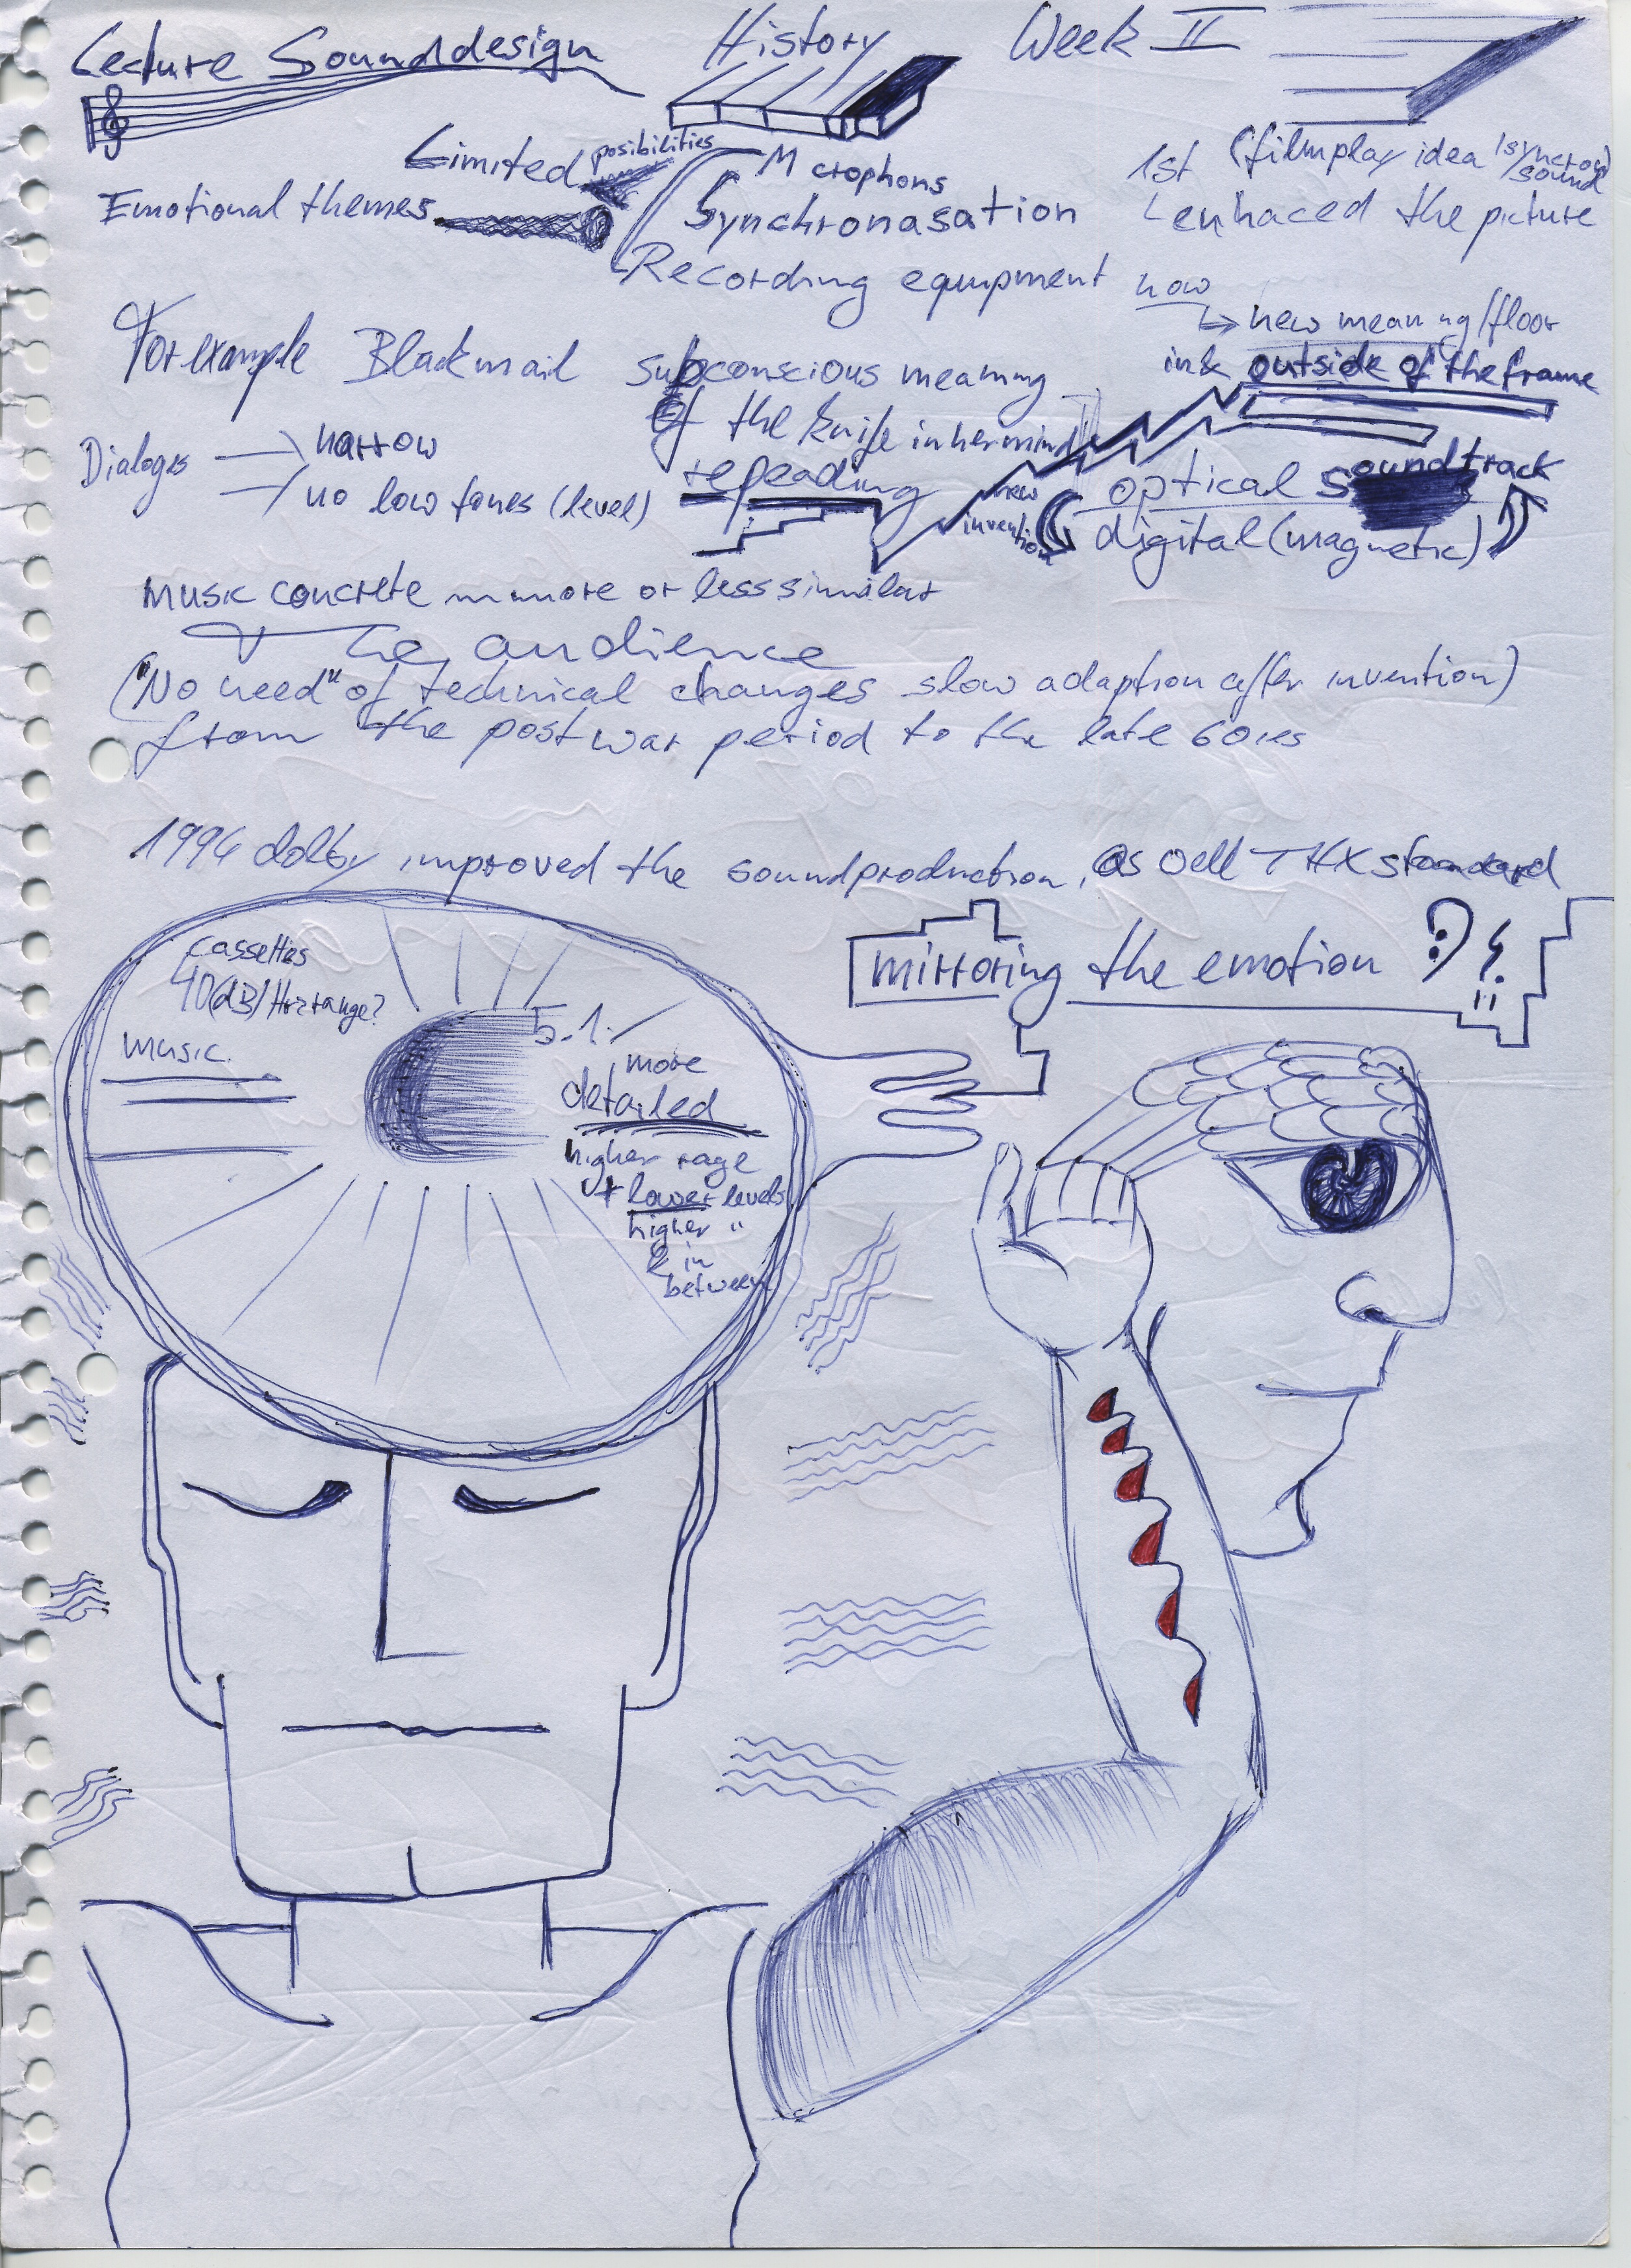 Lecture Sounddesign History Week II
Limited posibilities
Emotional themes
Microphons
Synchronasation
Recording equipment
1st (filmplay idea /syncron sound)
enhaced the picture
now
new meaning/floor
ink outside of the frame
For example Blackmail subconscious meaning
of the knife in her mind
repeading
Dialoges narrow
no low tones (level)
new invention
optical soundtrack
digital (magnetic)
music concrete more or less similar
audience
("No need" of technical changes slow adaption after invention)
from the post war period to the late 60ies
1994 dolby improved the soundproduction, as well THX standard
mirroring the emotion ?!
cassettes
40(dB)/Hrzrange?
music
5.1.
more
detailed
higher rage
+ lower levels
higher "
& in
between